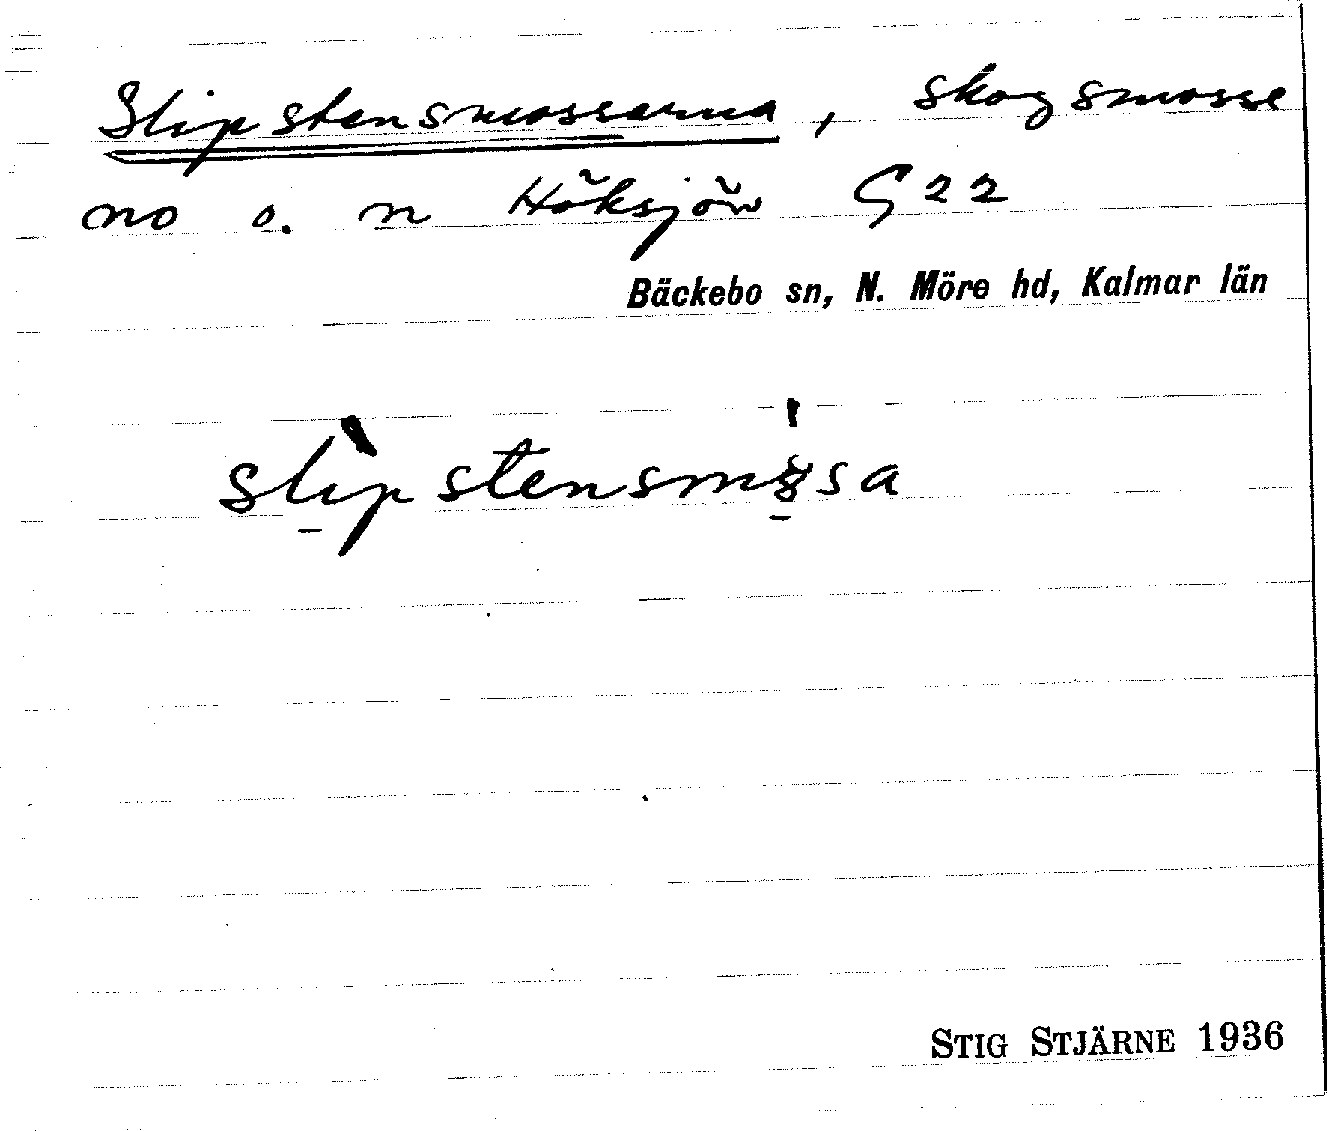 Slipstensmossarna, skogsmosse
no o. n Höksjön G22
Bäckebo sn, N. Möre hd, Kalmar län
STIG STJÄRNE 1936